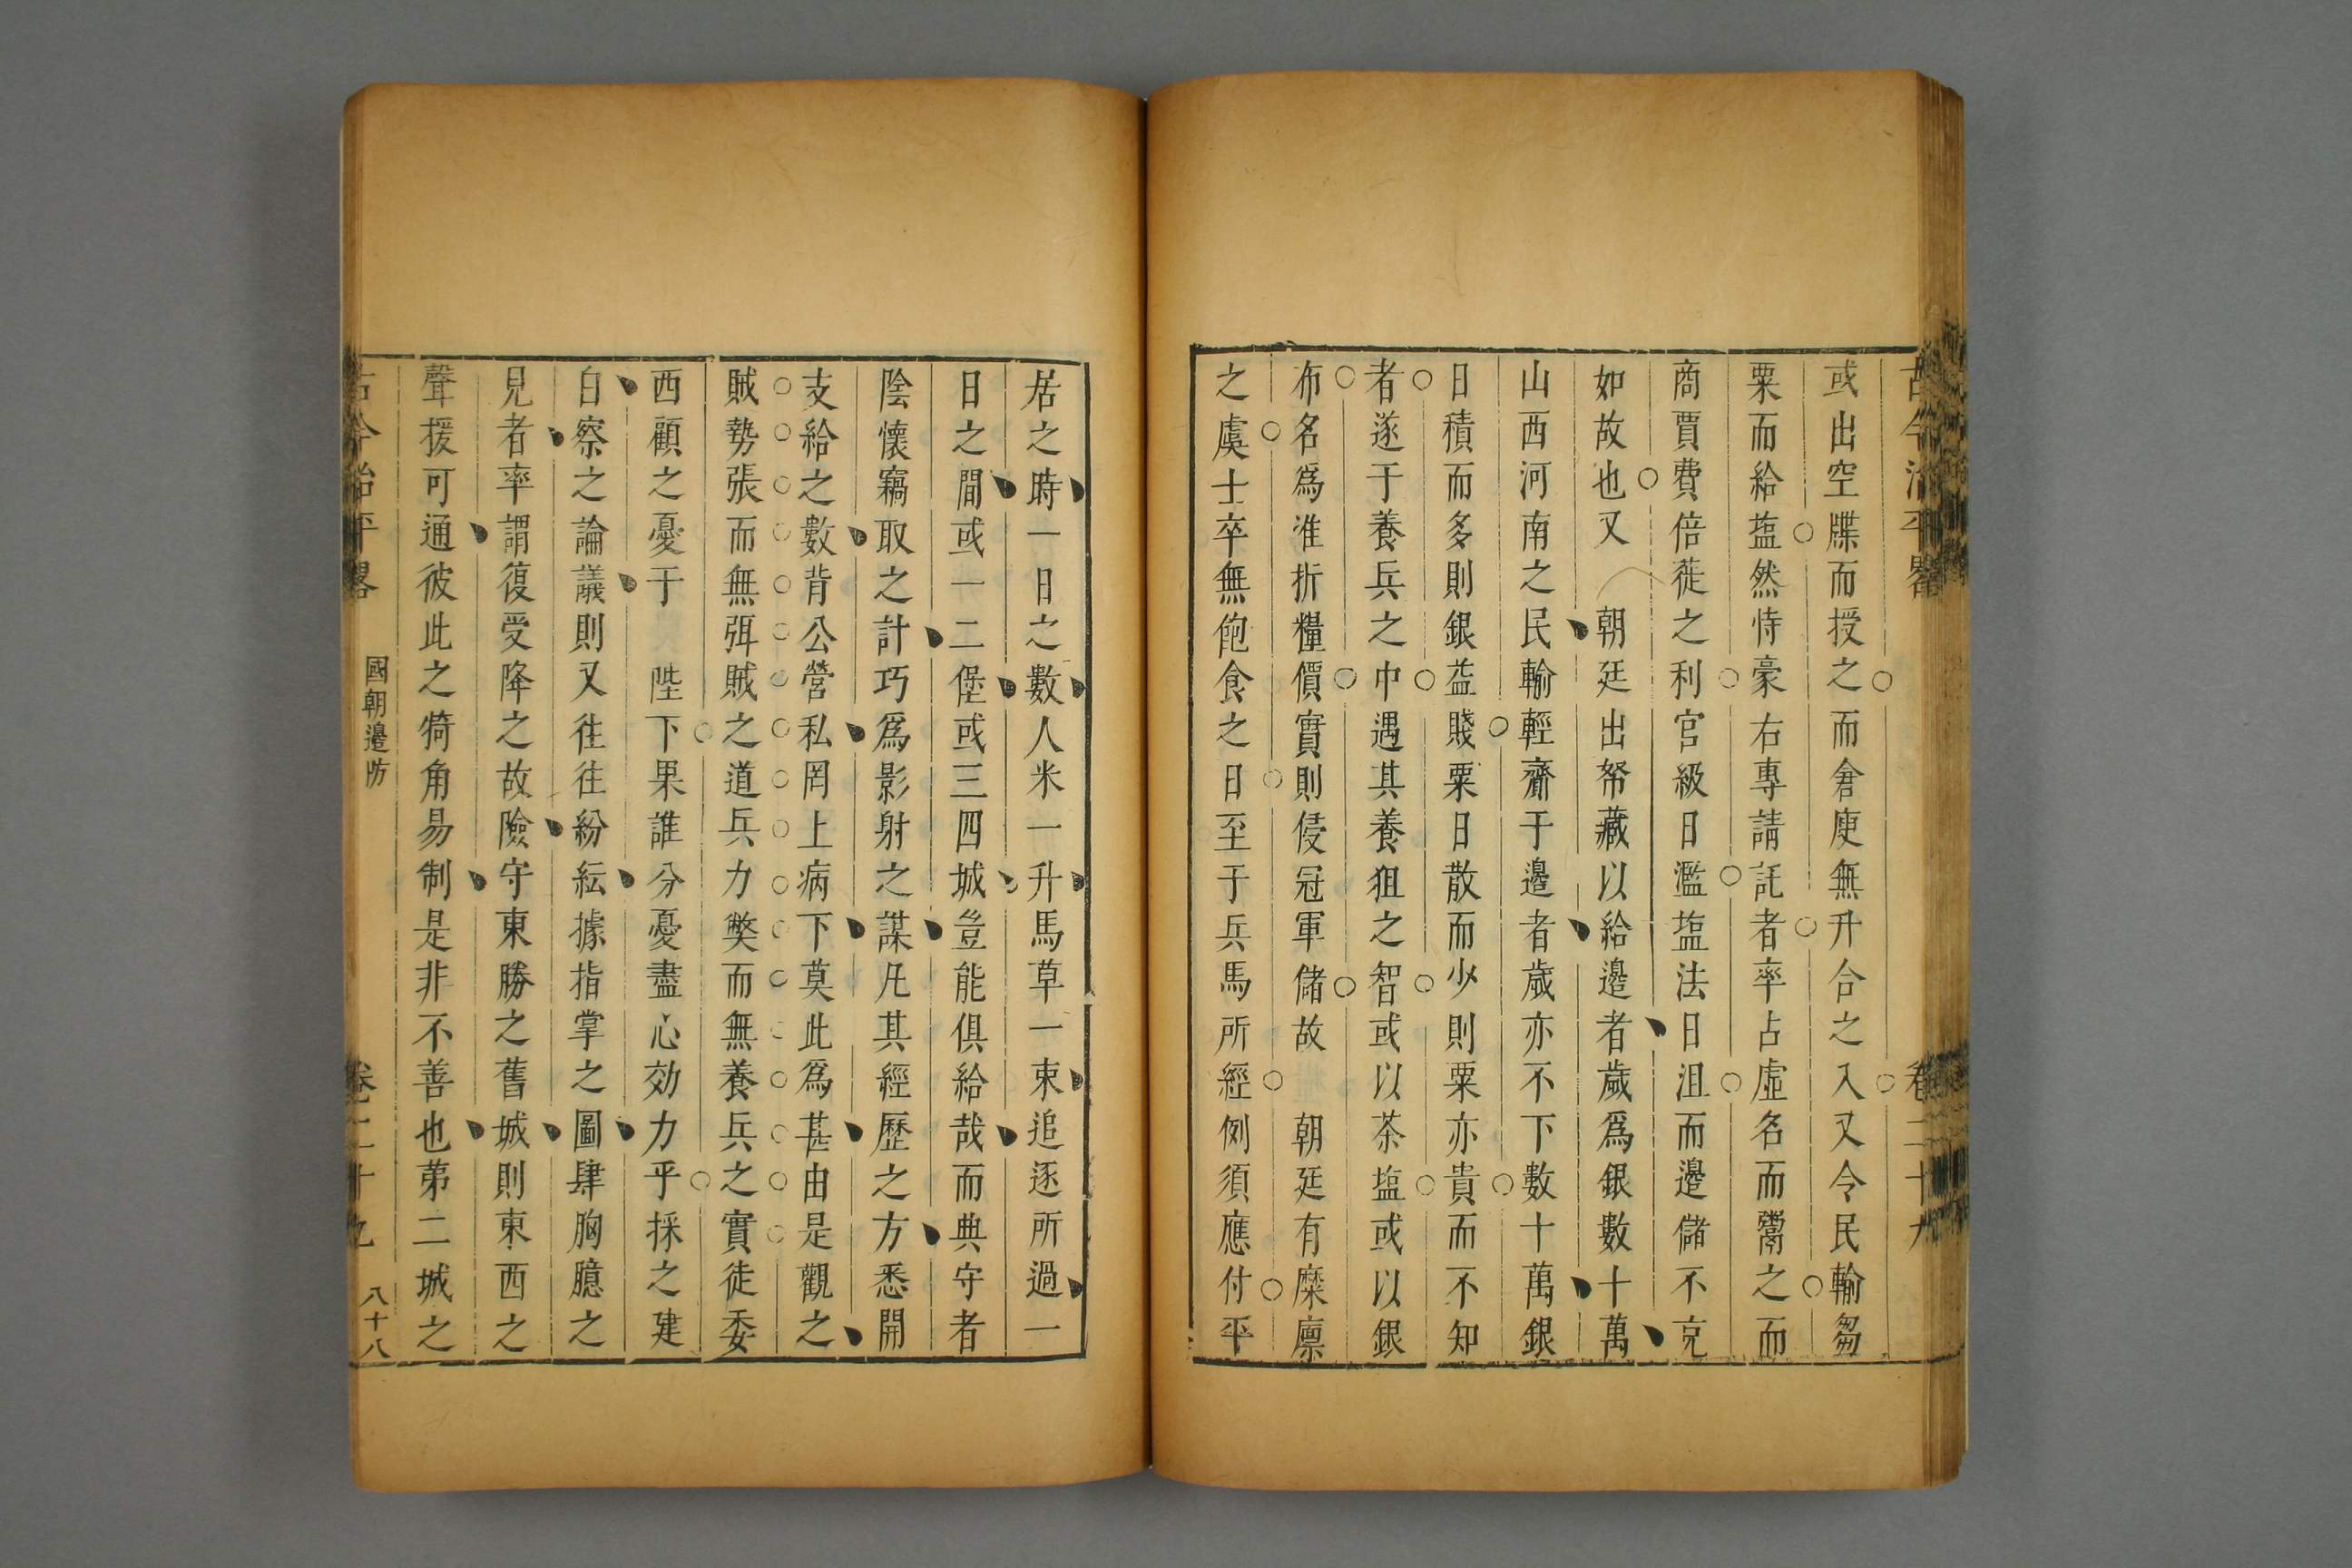 古今治平畧 卷二十九
或出空牒而授之而倉庾無升合之入又令民輸芻
粟而給塩然恃豪右專請託者率占虛名而鬻之而
商賈費倍蓰之利官級日濫塩法日沮而邊儲不克
如故也又 朝廷出帑藏以給邊者歲爲銀數十萬
山西河南之民輸輕齎于邊者歲亦不下數十萬銀
日積而多則銀益賤粟日散而少則粟亦貴而不知
者遂于養兵之中遇其養狙之智或以茶塩或以銀
布名爲准折糧價實則侵冠軍儲故 朝廷有糜廩
之虞士卒無飽食之日至于兵馬所經例須應付平
居之時一日之數人米一升馬草一束追逐所過一
日之間或一二堡或三四城豈能俱給哉而典守者
陰懷竊取之計巧爲影射之謀凡其經歷之方悉開
支給之數背公營私罔上病下莫此爲甚由是觀之
賊勢張而無弭賊之道兵力獘而無養兵之實徒委
西顧之憂于 陛下果誰分憂盡心効力乎採之建
白察之論議則又徃徃紛紜據指掌之圖肆胸臆之
見者率謂復受降之故險守東勝之舊城則東西之
聲援可通彼此之犄角易制是非不善也第二城之
古今治平畧 國朝邊防 卷二十九 八十八